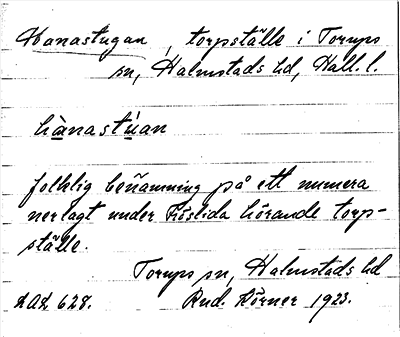 Hanastugan, torpställe i Torups
sn, Halmstads hd, Hall. l.
hànastúan
folklig benämning på ett numera
nerlagt under Röslida hörande torp-
ställe.
Torups sn, Halmstads hd
LAL 628. Rud. Körner 1923.